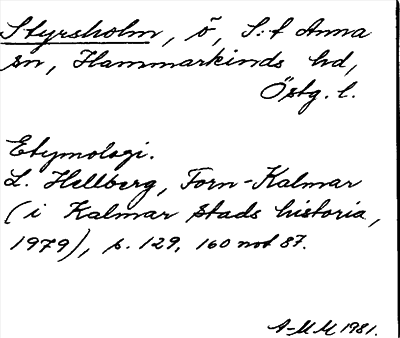 Styrsholm, ö, S:t Anna
sn, Hammarkinds hd,
Östg. l.
Etymologi.
L. Hellberg, Forn-Kalmar
(i Kalmar stads historia,
1979), s. 129, 160 not 87.
A-MM 1981.